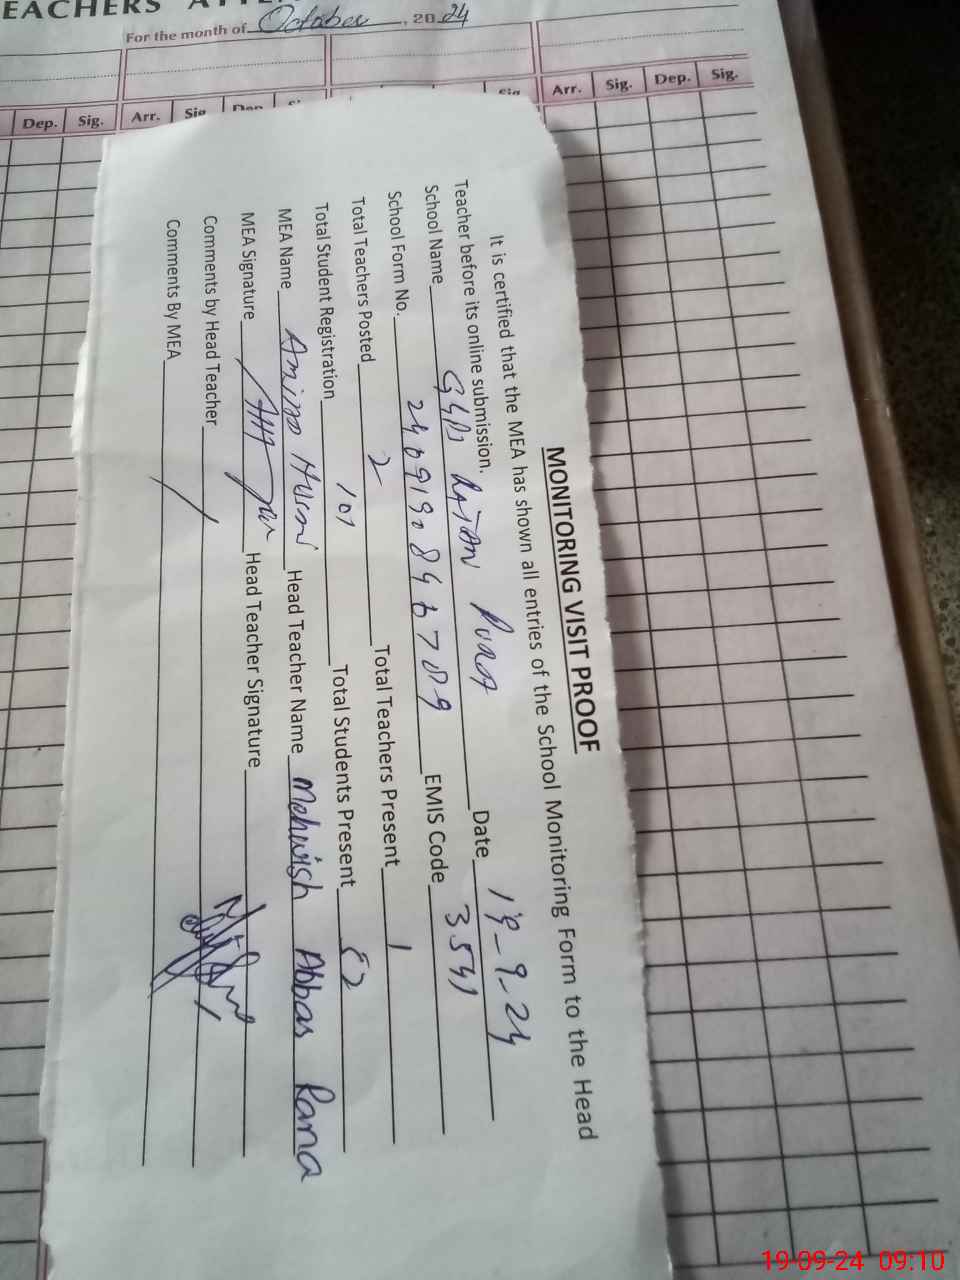 TEACHERS ATTEN
For the month of October, 2024
Dep. Sig. Arr. Sig Dep Sig Arr. Sig. Dep. Sig.
MONITORING VISIT PROOF
It is certified that the MEA has shown all entries of the School Monitoring Form to the Head
Teacher before its online submission.
School Name Date 19-9-24
School Form No. EMIS Code
Total Teachers Posted 2 Total Teachers Present 1
Total Student Registration 101 Total Students Present
MEA Name Head Teacher Name Mehwish Abbas Rana
MEA Signature Head Teacher Signature
Comments by Head Teacher
Comments By MEA
19-09-24 09:10